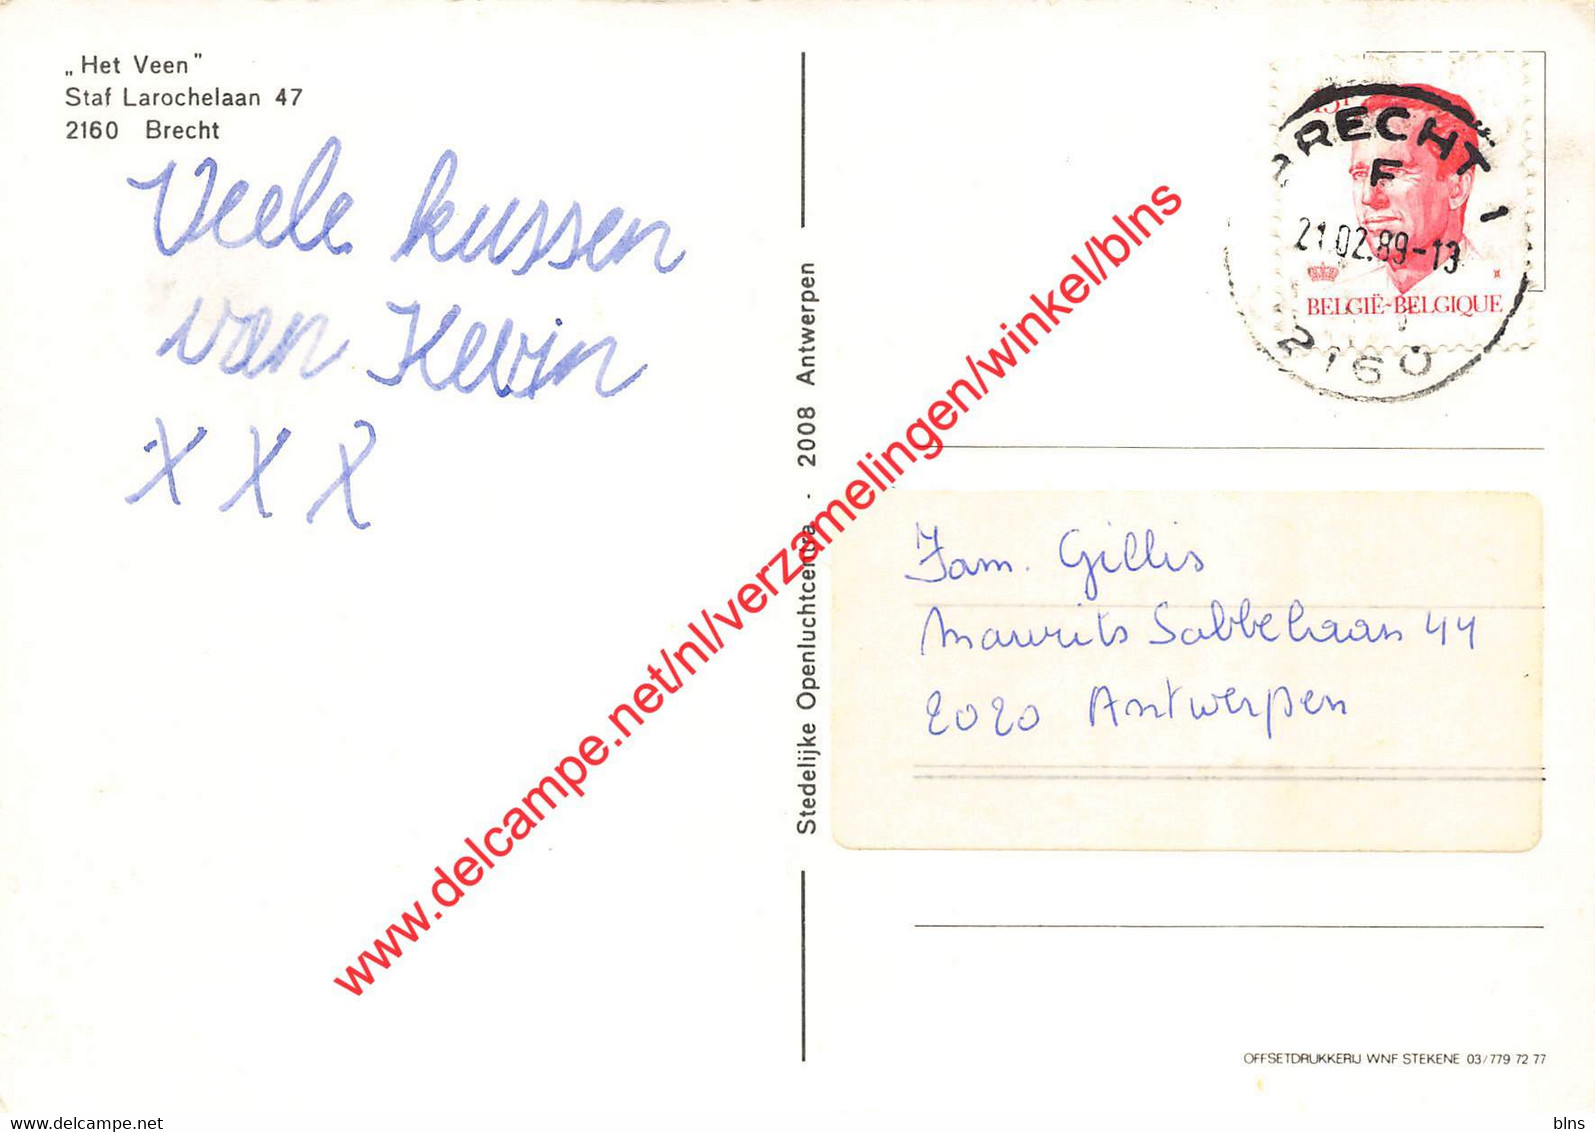 „Het Veen"
Staf Larochelaan 47
2160 Brecht
Veele kussen
van Kevin
X X X
Stedelijke Openluchtcentra - 2008 Antwerpen
BRECHT 1
F
21.02.89-13
BELGIË-BELGIQUE
2160
Fam. Gillis
Maurits Sabbelaan 44
2020 Antwerpen
OFFSETDRUKKERIJ WNF STEKENE 03/779 72 77
www.delcampe.net/nl/verzamelingen/winkel/blns
blns